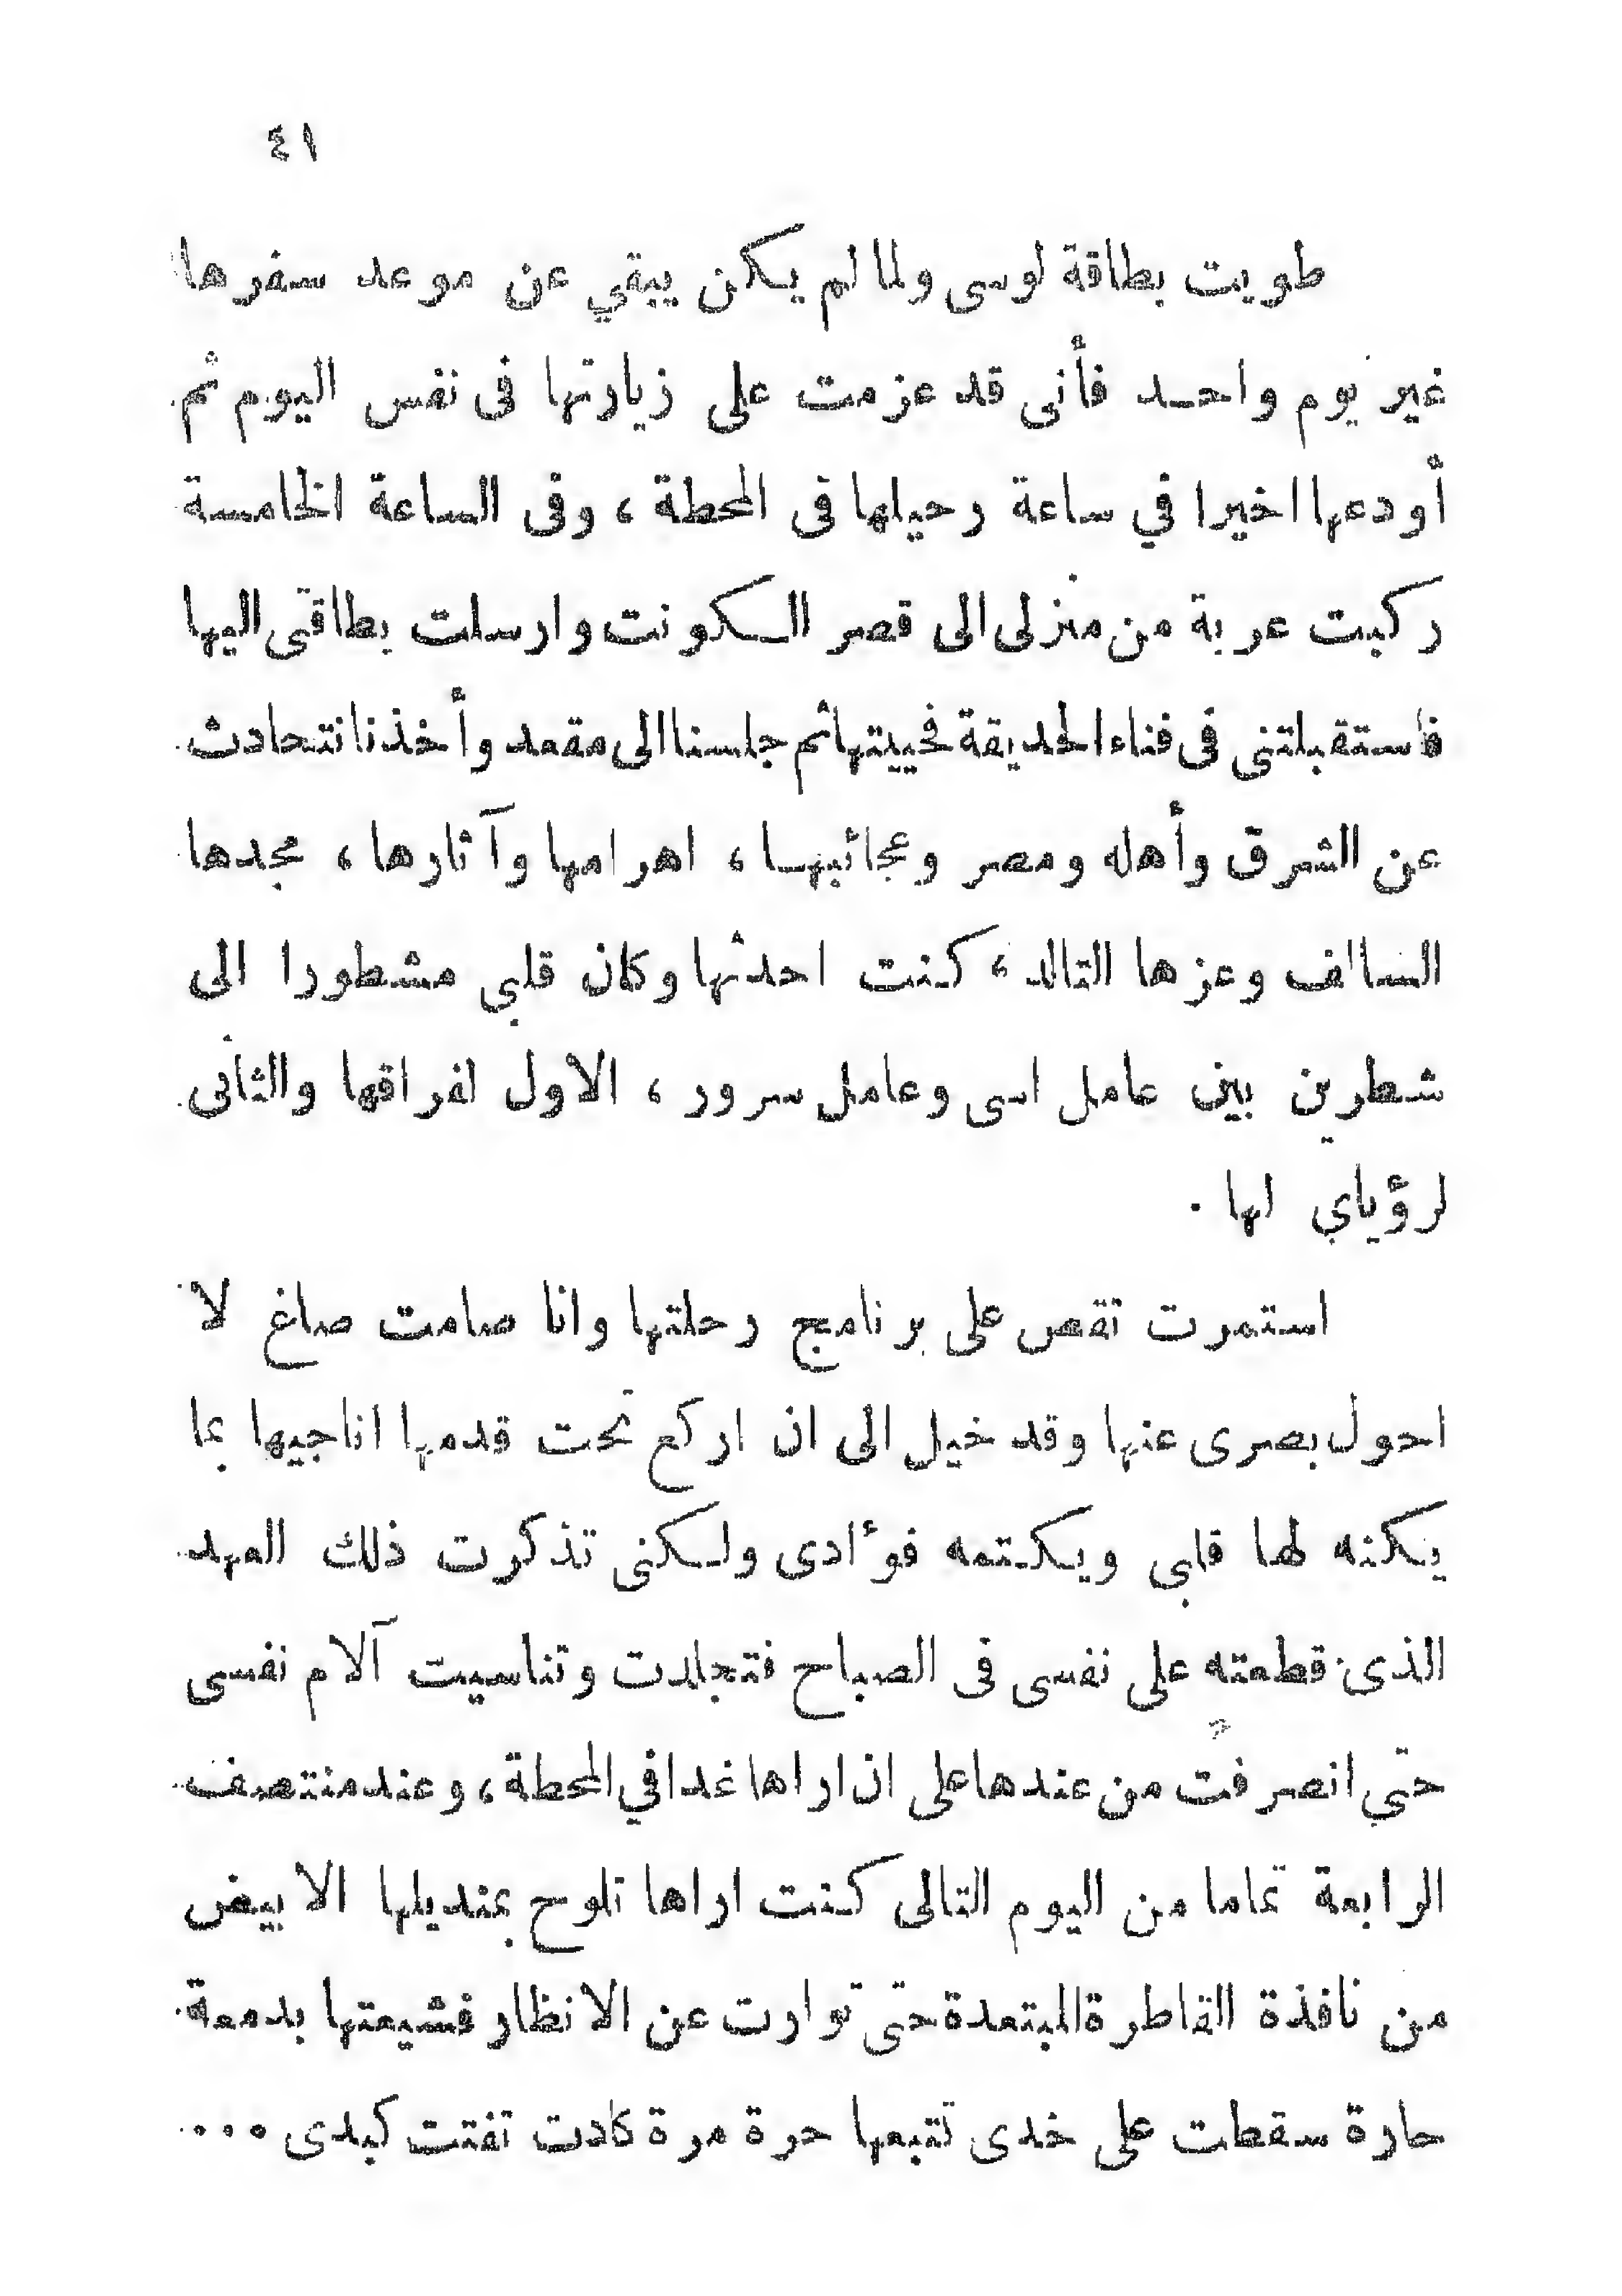 ٤١
طويت بطاقة لوسى ولما لم يكن يبقي عن موعد سفرها
غير يوم واحد فأنى قد عزمت على زيارتها فى نفس اليوم ثم
أودعها اخيرا في ساعة رحيلها فى المحطة ، وفى الساعة الخامسة
ركبت عربة من منزلى الى قصر الكونت وارسلت بطاقتى اليها
فاستقبلتنى فى فناء الحديقة فحييتها ثم جلسنا الى مقعد وأخذنا نتحادث
عن الشرق وأهله ومصر وعجائبها ، اهرامها وآثارها ، مجدها
السالف وعزها التالد ، كنت احدثها وكان قلبى مشطورا الى
شطرين بين عامل اسى وعامل سرور ، الاول لفراقها والثانى
لرؤياي لها .
استمرت تقص على برنامج رحلتها وانا صامت صاغ لا
احول بصرى عنها وقد خيل الى ان اركع تحت قدمها اناجيها بما
يكنه لها قلبى ويكتمه فؤادى ولكنى تذكرت ذلك العهد
الذى قطعته على نفسى فى الصباح فتجلدت وتناسيت آلام نفسى
حتي انصرفت من عندها على ان اراها غدا في المحطة ، وعند منتصف
الرابعة تماما من اليوم التالى كنت اراها تلوح بمنديلها الابيض
من نافذة القاطرة المبتعدة حتى توارت عن الانظار فشيعتها بدمعة
حارة سقطت على خدى تتبعها حرة مرة كادت تفتت كبدى ...